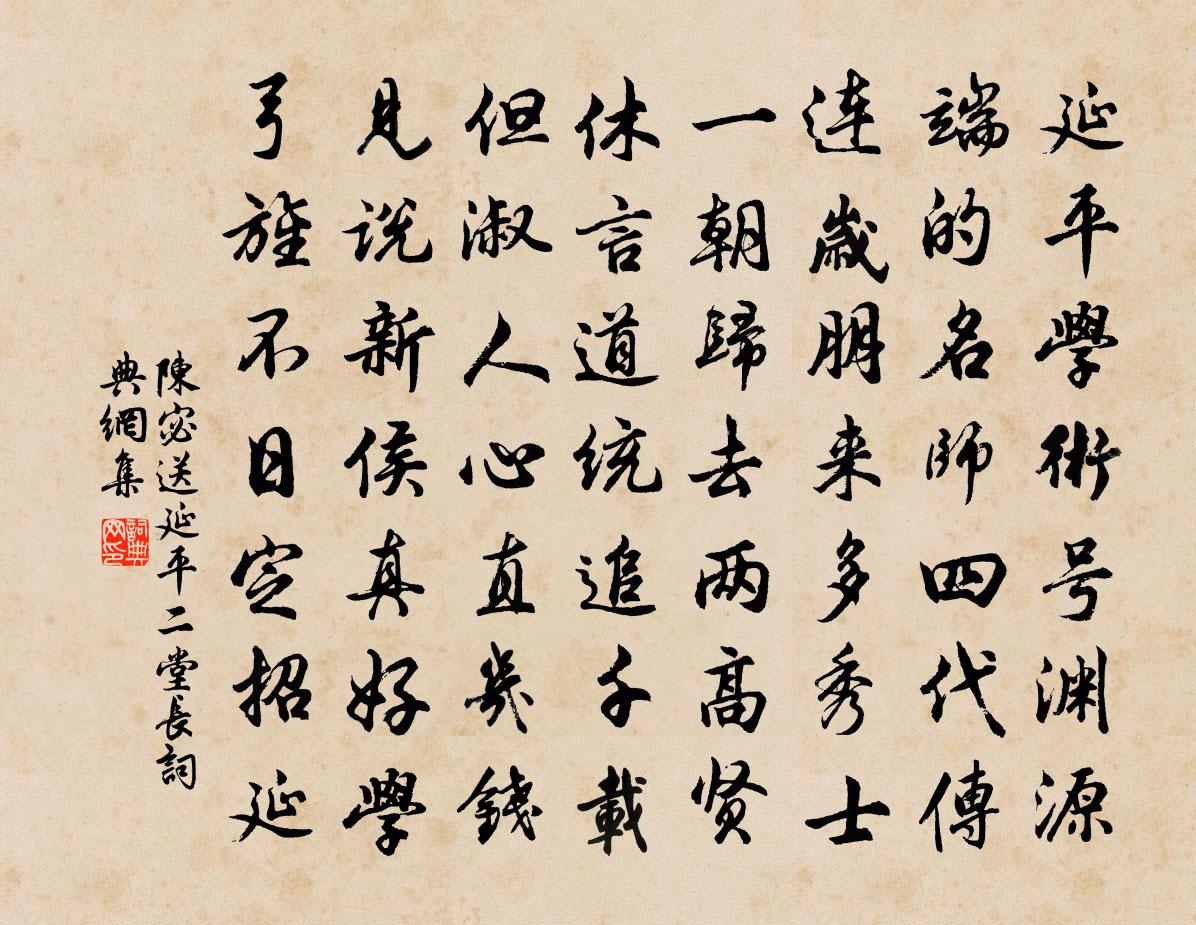 延平學術号渊源
端的名师四代傳
連歲朋来多秀士
一朝歸去两高贤
休言道统追千載
但淑人心直幾錢
見说新侯真好學
弓旌不日定招延
陳宓送延平二堂長詞
典網集
詞典网印